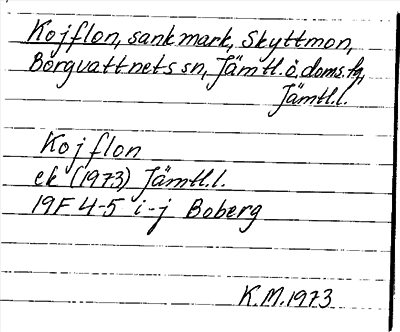 Kojflon, sankmark, Skyttmon,
Borgvattnets sn, Jämtl. ö. doms. fg,
Jämtl.l.
Kojflon
ek (1973) Jämtl.l.
19F 4-5 i-j Boberg
K.M. 1973